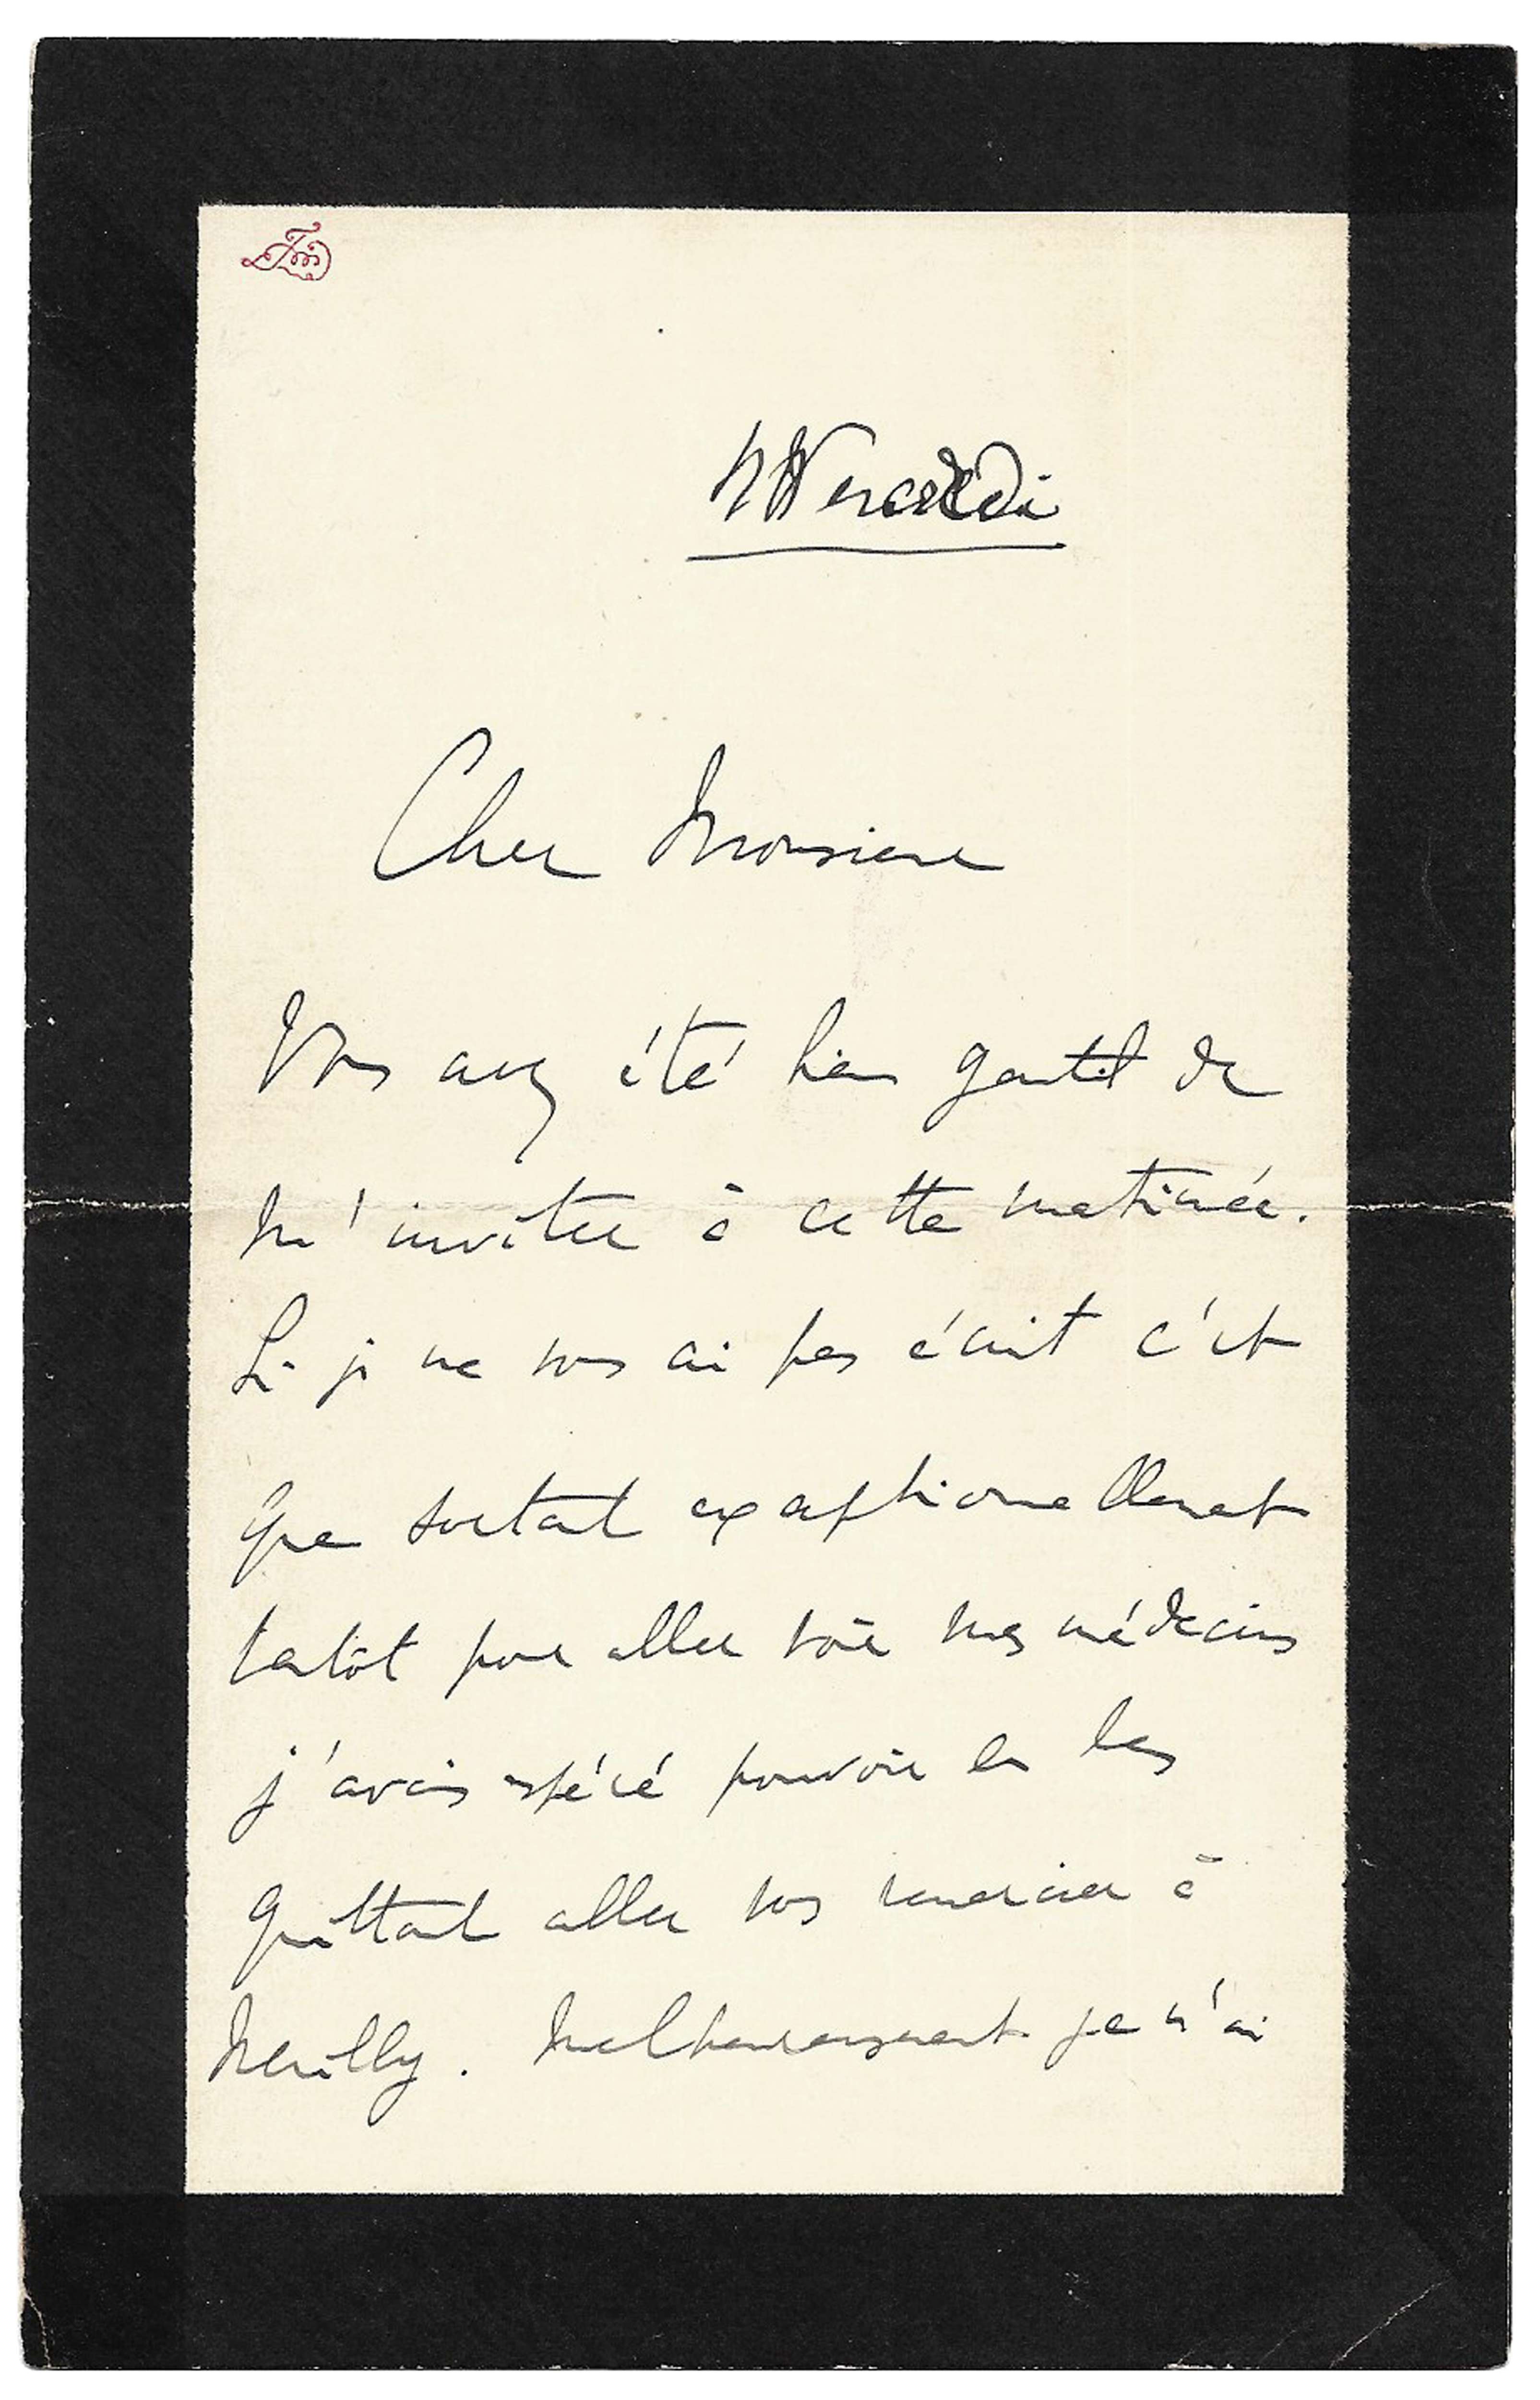 Cher Monsieur
Vous avez été bien gentil de
m'inviter à cette matinée.
Si je ne vous ai pas écrit c'est
que sortant exceptionnellement
tantôt pour aller voir mes médecins
j'avais espéré pouvoir en les
quittant aller vous remercier à
Neuilly. Malheureusement je n'ai